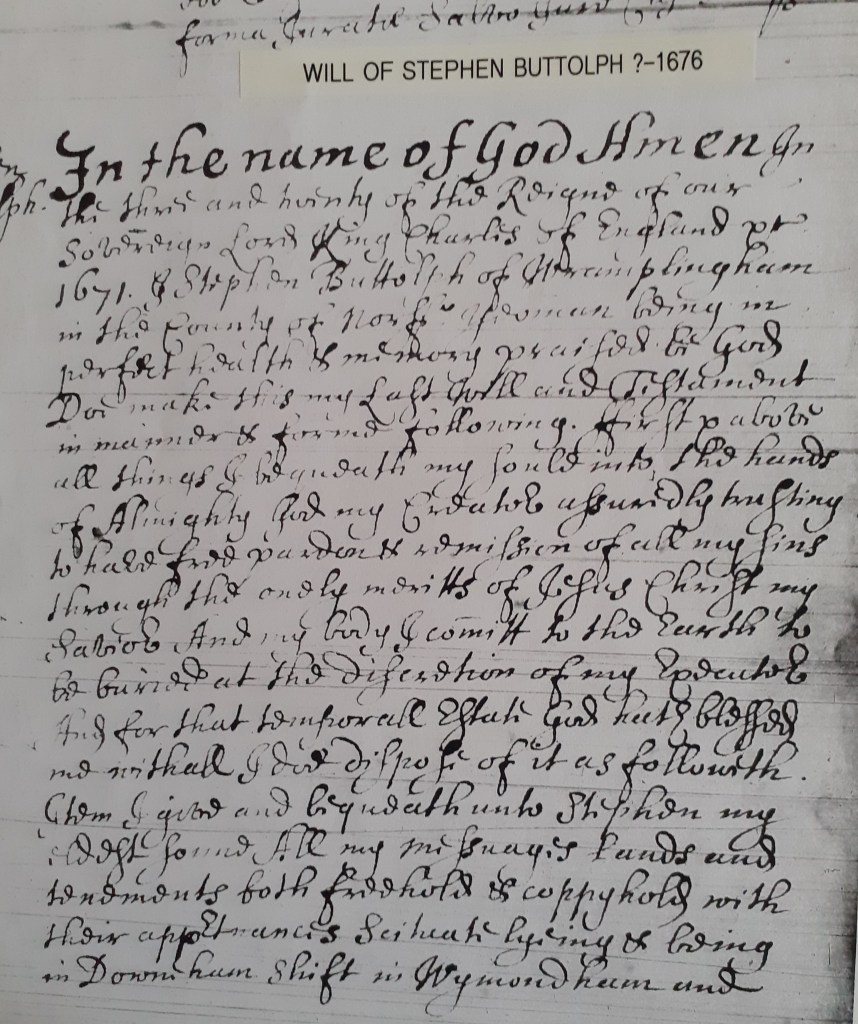 forma, Jurati Salvo Jure
WILL OF STEPHEN BUTTOLPH ?–1676
In the name of God Amen In
lph. the three and twenty of the Reigne of our
Sovereign Lord King Charles of England &c
1671. I Stephen Buttolph of Wramplingham
in the County of Norff. Yeoman being in
perfect health & memory praised be God
Doe make this my Last Will and Testament
in manner & forme following. ffirst & above
all things I bequeath my soule into the hands
of Almighty God my Creator assuredly trusting
to have free pardon & remission of all my sins
through the onely meritts of Jesus Christ my
Savior And my body I comitt to the Earth to
be buried at the discretion of my Executor
And for that temporall Estate God hath blessed
me withall I doe dispose of it as followeth.
Item I give and bequeath unto Stephen my
eldest sonne All my messuages Lands and
tenements both freehold & coppyhold with
their apptenances Scituate lyeing & being
in Downham Shift in Wymondham and